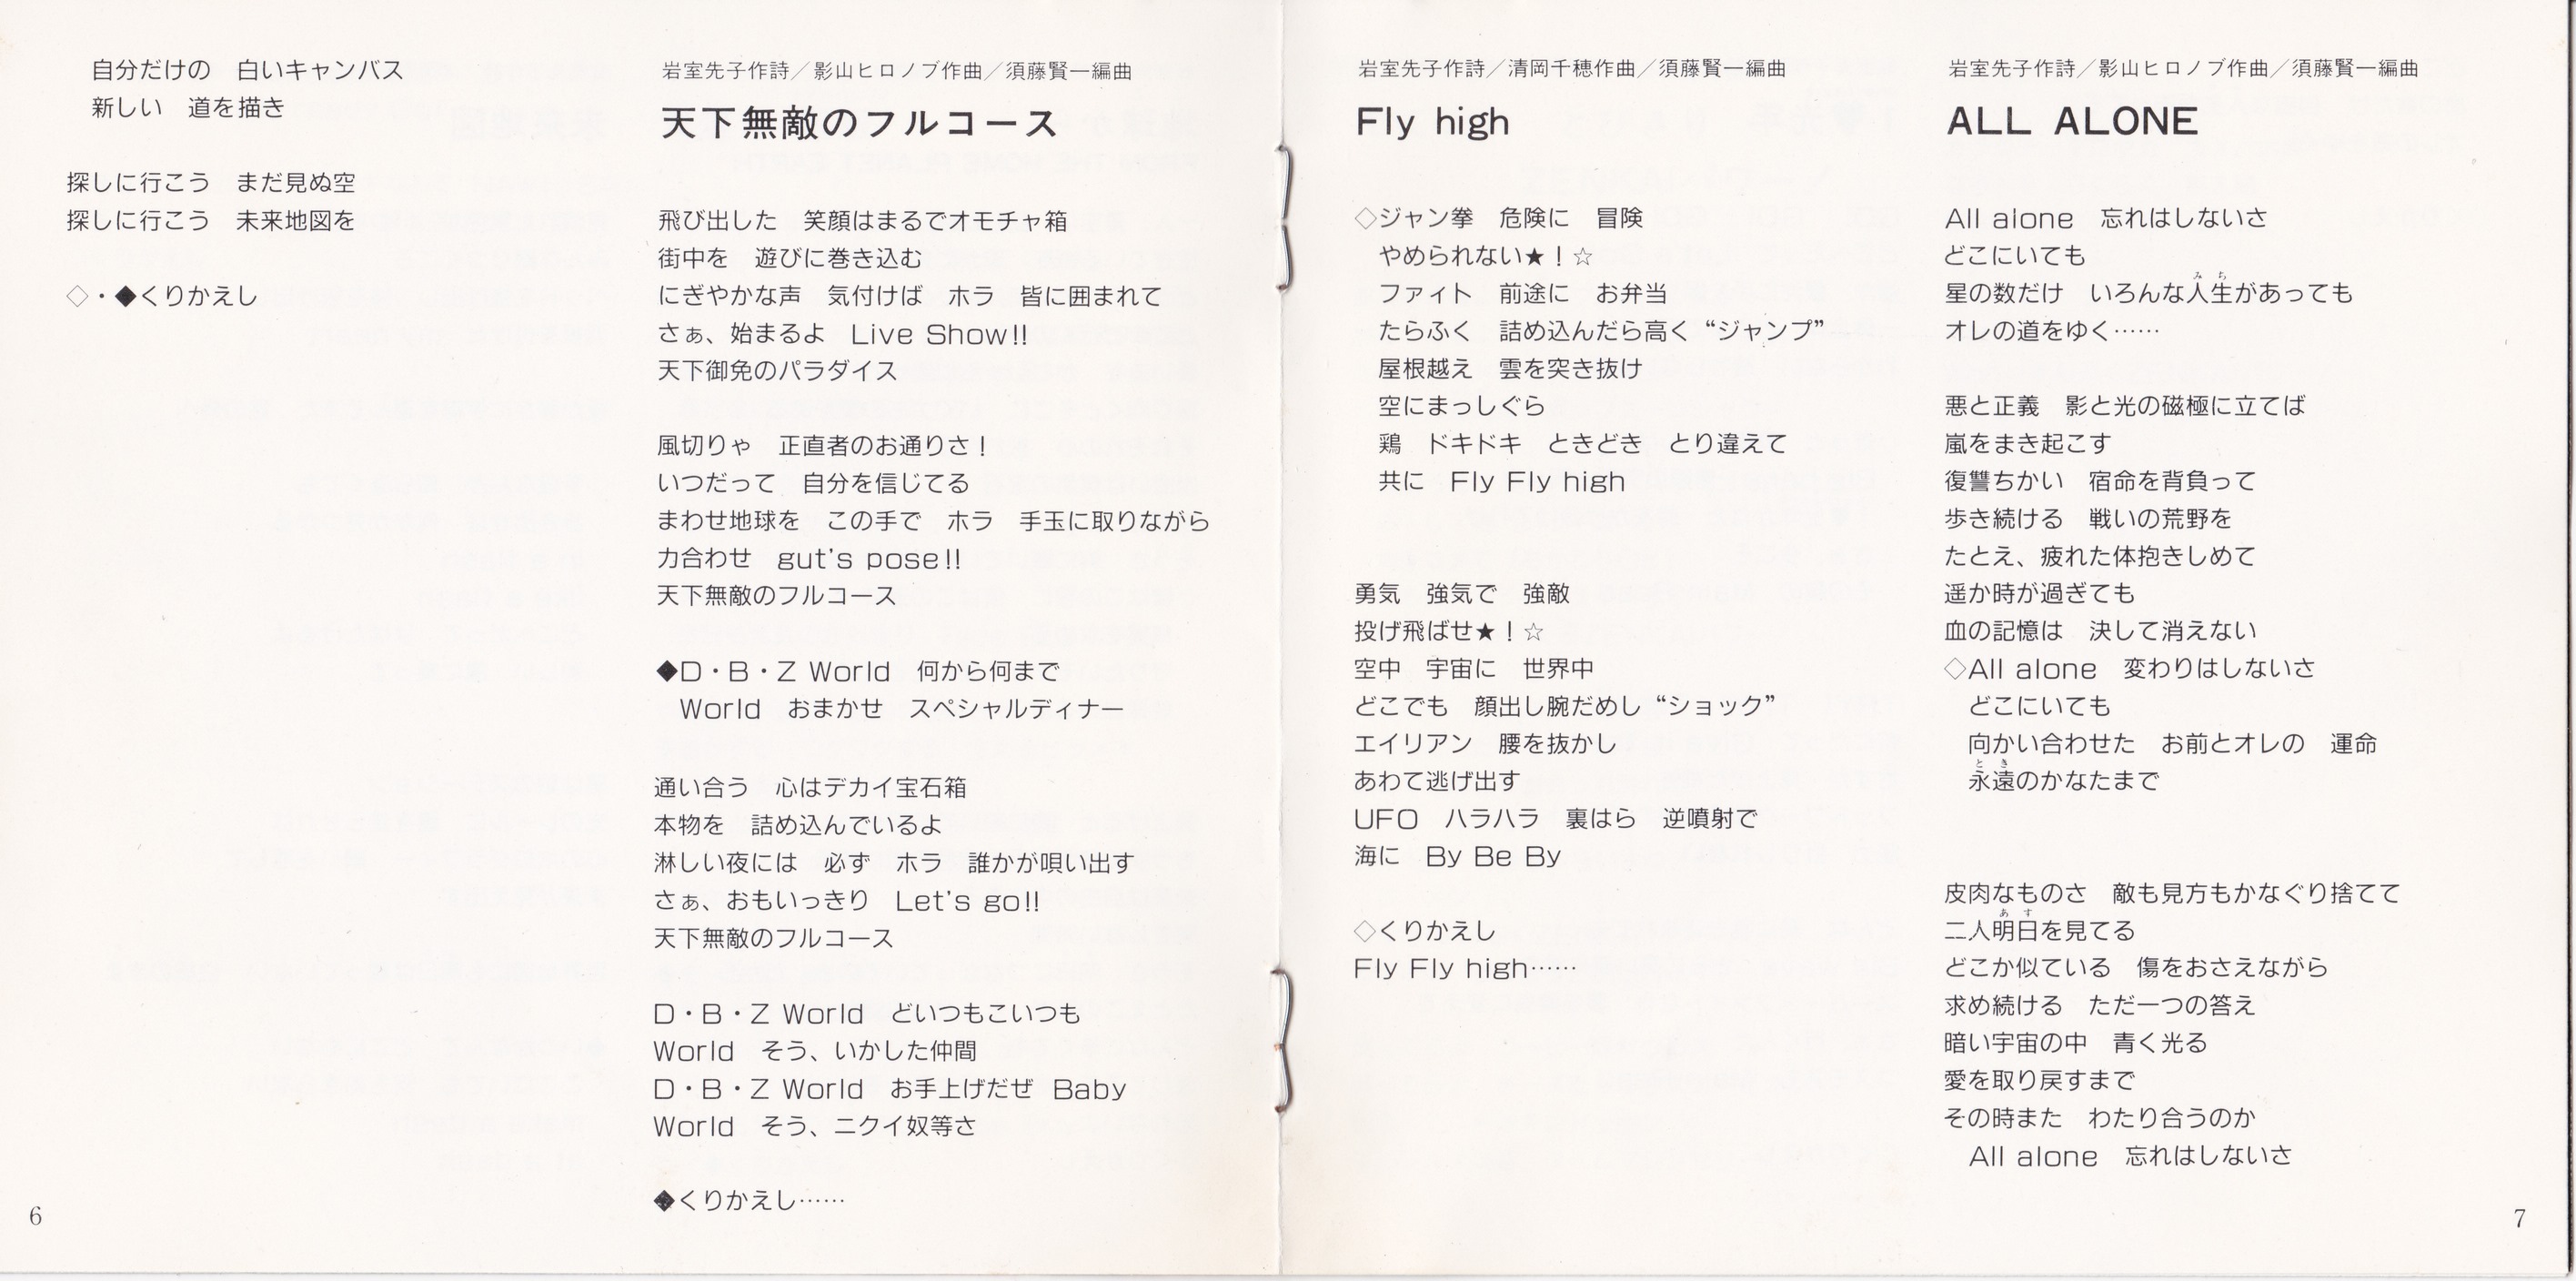 自分だけの　白いキャンバス
新しい　道を描き
探しに行こう　まだ見ぬ空
探しに行こう　未来地図を
◇・◆くりかえし
6
岩室先子作詩／影山ヒロノブ作曲／須藤賢一編曲
天下無敵のフルコース
飛び出した　笑顔はまるでオモチャ箱
街中を　遊びに巻き込む
にぎやかな声　気付けば　ホラ　皆に囲まれて
さぁ、始まるよ　Live Show!!
天下御免のパラダイス
風切りゃ　正直者のお通りさ！
いつだって　自分を信じてる
まわせ地球を　この手で　ホラ　手玉に取りながら
力合わせ　gut's pose!!
天下無敵のフルコース
◆D・B・Z World　何から何まで
World　おまかせ　スペシャルディナー
通い合う　心はデカイ宝石箱
本物を　詰め込んでいるよ
淋しい夜には　必ず　ホラ　誰かが唄い出す
さぁ、おもいっきり　Let's go!!
天下無敵のフルコース
D・B・Z World　どいつもこいつも
World　そう、いかした仲間
D・B・Z World　お手上げだぜ　Baby
World　そう、ニクイ奴等さ
◆くりかえし……
岩室先子作詩／清岡千穂作曲／須藤賢一編曲
Fly high
◇ジャン拳　危険に　冒険
やめられない★！☆
ファィト　前途に　お弁当
たらふく　詰め込んだら高く“ジャンプ”
屋根越え　雲を突き抜け
空にまっしぐら
鶏　ドキドキ　ときどき　とり違えて
共に　Fly Fly high
勇気　強気で　強敵
投げ飛ばせ★！☆
空中　宇宙に　世界中
どこでも　顔出し腕だめし“ショック”
エイリアン　腰を抜かし
あわて逃げ出す
UFO　ハラハラ　裏はら　逆噴射で
海に　By Be By
◇くりかえし
Fly Fly high……
岩室先子作詩／影山ヒロノブ作曲／須藤賢一編曲
ALL ALONE
All alone　忘れはしないさ
どこにいても
みち
星の数だけ　いろんな人生があっても
オレの道をゆく……
悪と正義　影と光の磁極に立てば
嵐をまき起こす
復讐ちかい　宿命を背負って
歩き続ける　戦いの荒野を
たとえ、疲れた体抱きしめて
遥か時が過ぎても
血の記憶は　決して消えない
◇All alone　変わりはしないさ
どこにいても
向かい合わせた　お前とオレの　運命
とき
永遠のかなたまで
皮肉なものさ　敵も見方もかなぐり捨てて
あす
二人明日を見てる
どこか似ている　傷をおさえながら
求め続ける　ただ一つの答え
暗い宇宙の中　青く光る
愛を取り戻すまで
その時また　わたり合うのか
All alone　忘れはしないさ
7